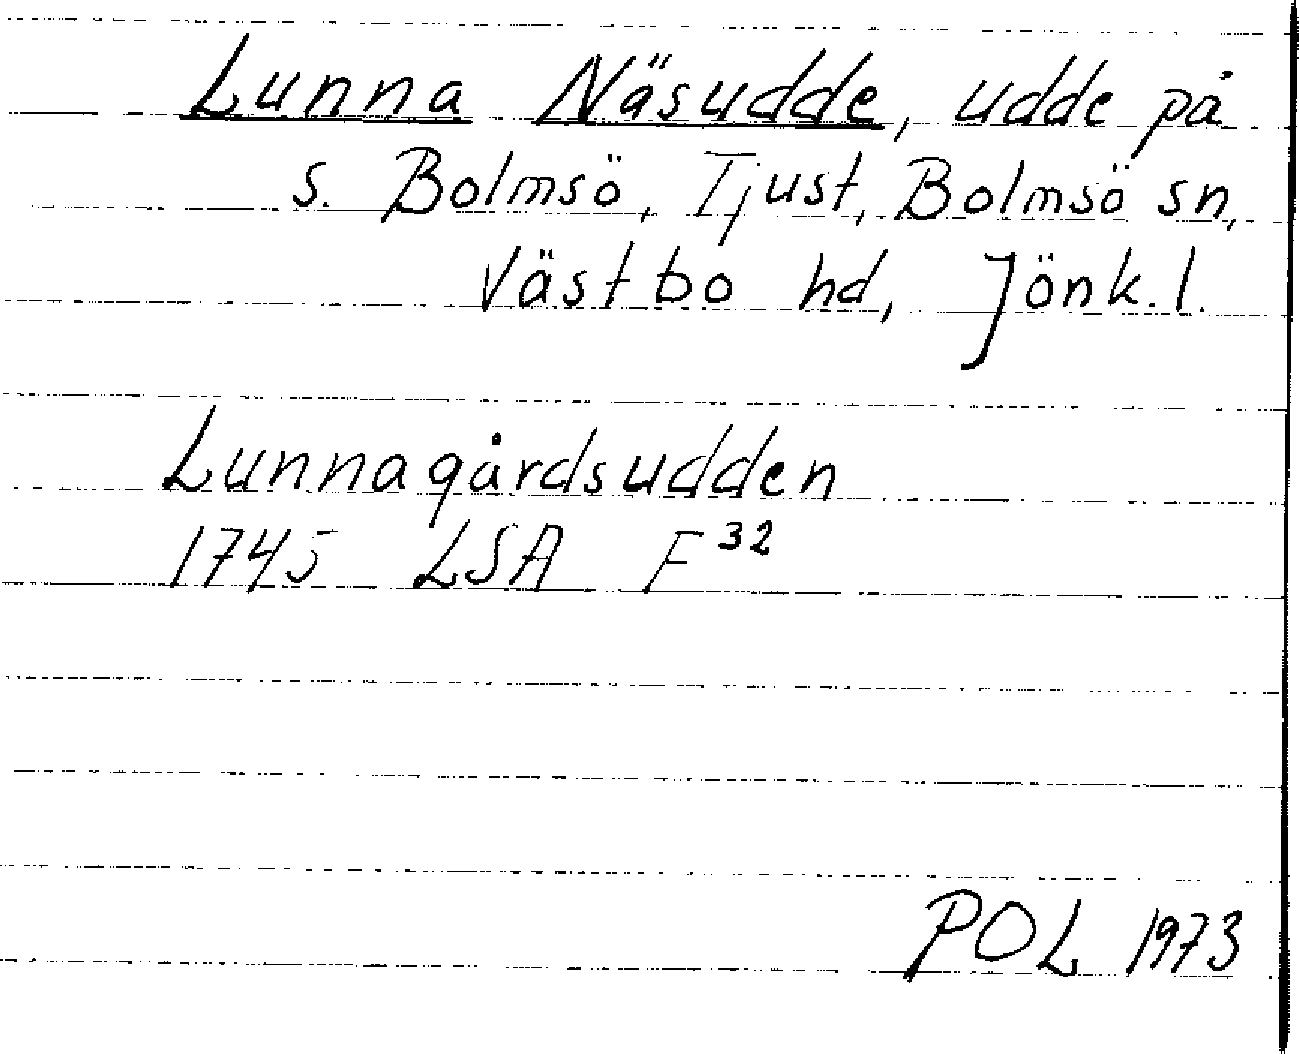 Lunna Näsudde, udde på
s. Bolmsö, Tjust, Bolmsö sn,
Västbo hd, Jönk.l.
Lunnagårdsudden
1745 LSA F 32
POL 1973